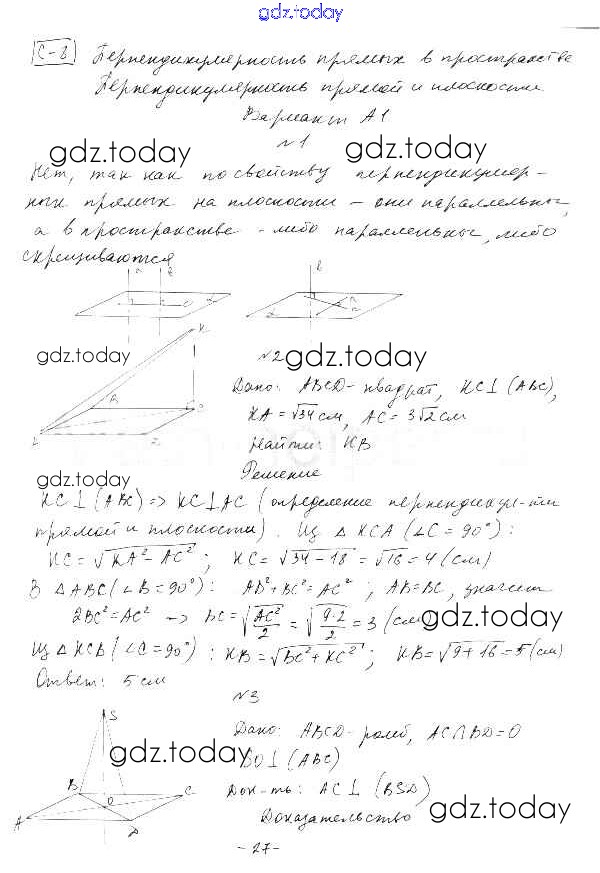 gdz.today
С-8 Перпендикулярность прямых в пространстве
Перпендикулярность прямой и плоскости
Вариант А1
№1
gdz.today gdz.today
Нет, так как по свойству перпендикуляр-
ных прямых на плоскости – они параллельны,
а в пространстве - либо параллельны, либо
скрещиваются
gdz.today
№2
gdz.today
Дано: ABCD - квадрат, KC⊥(ABC),
KA = √34 см, AC = 3√2 см
Найти: KB
Решение
gdz.today
KC⊥(ABC) => KC⊥AC (определение перпендикул-ти
прямой и плоскости). Из △KCA (∠C = 90°):
KC = √KA² - AC²; KC = √34 - 18 = √16 = 4 (см)
В △ABC (∠B = 90°): AB² + BC² = AC²; AB = BC, значит
2BC² = AC² → BC = √AC²/2 = √9·2/2 = 3 (см)
gdz.today
Из △KCB (∠C = 90°): KB = √BC² + KC²; KB = √9 + 16 = 5 (см)
Ответ: 5 см
№3
Дано: ABCD - ромб, AC∩BD = O
gdz.today
SO⊥(ABC)
Док-ть: AC⊥(BSD)
Доказательство
gdz.today
S
B
C
O
A
D
- 27 -